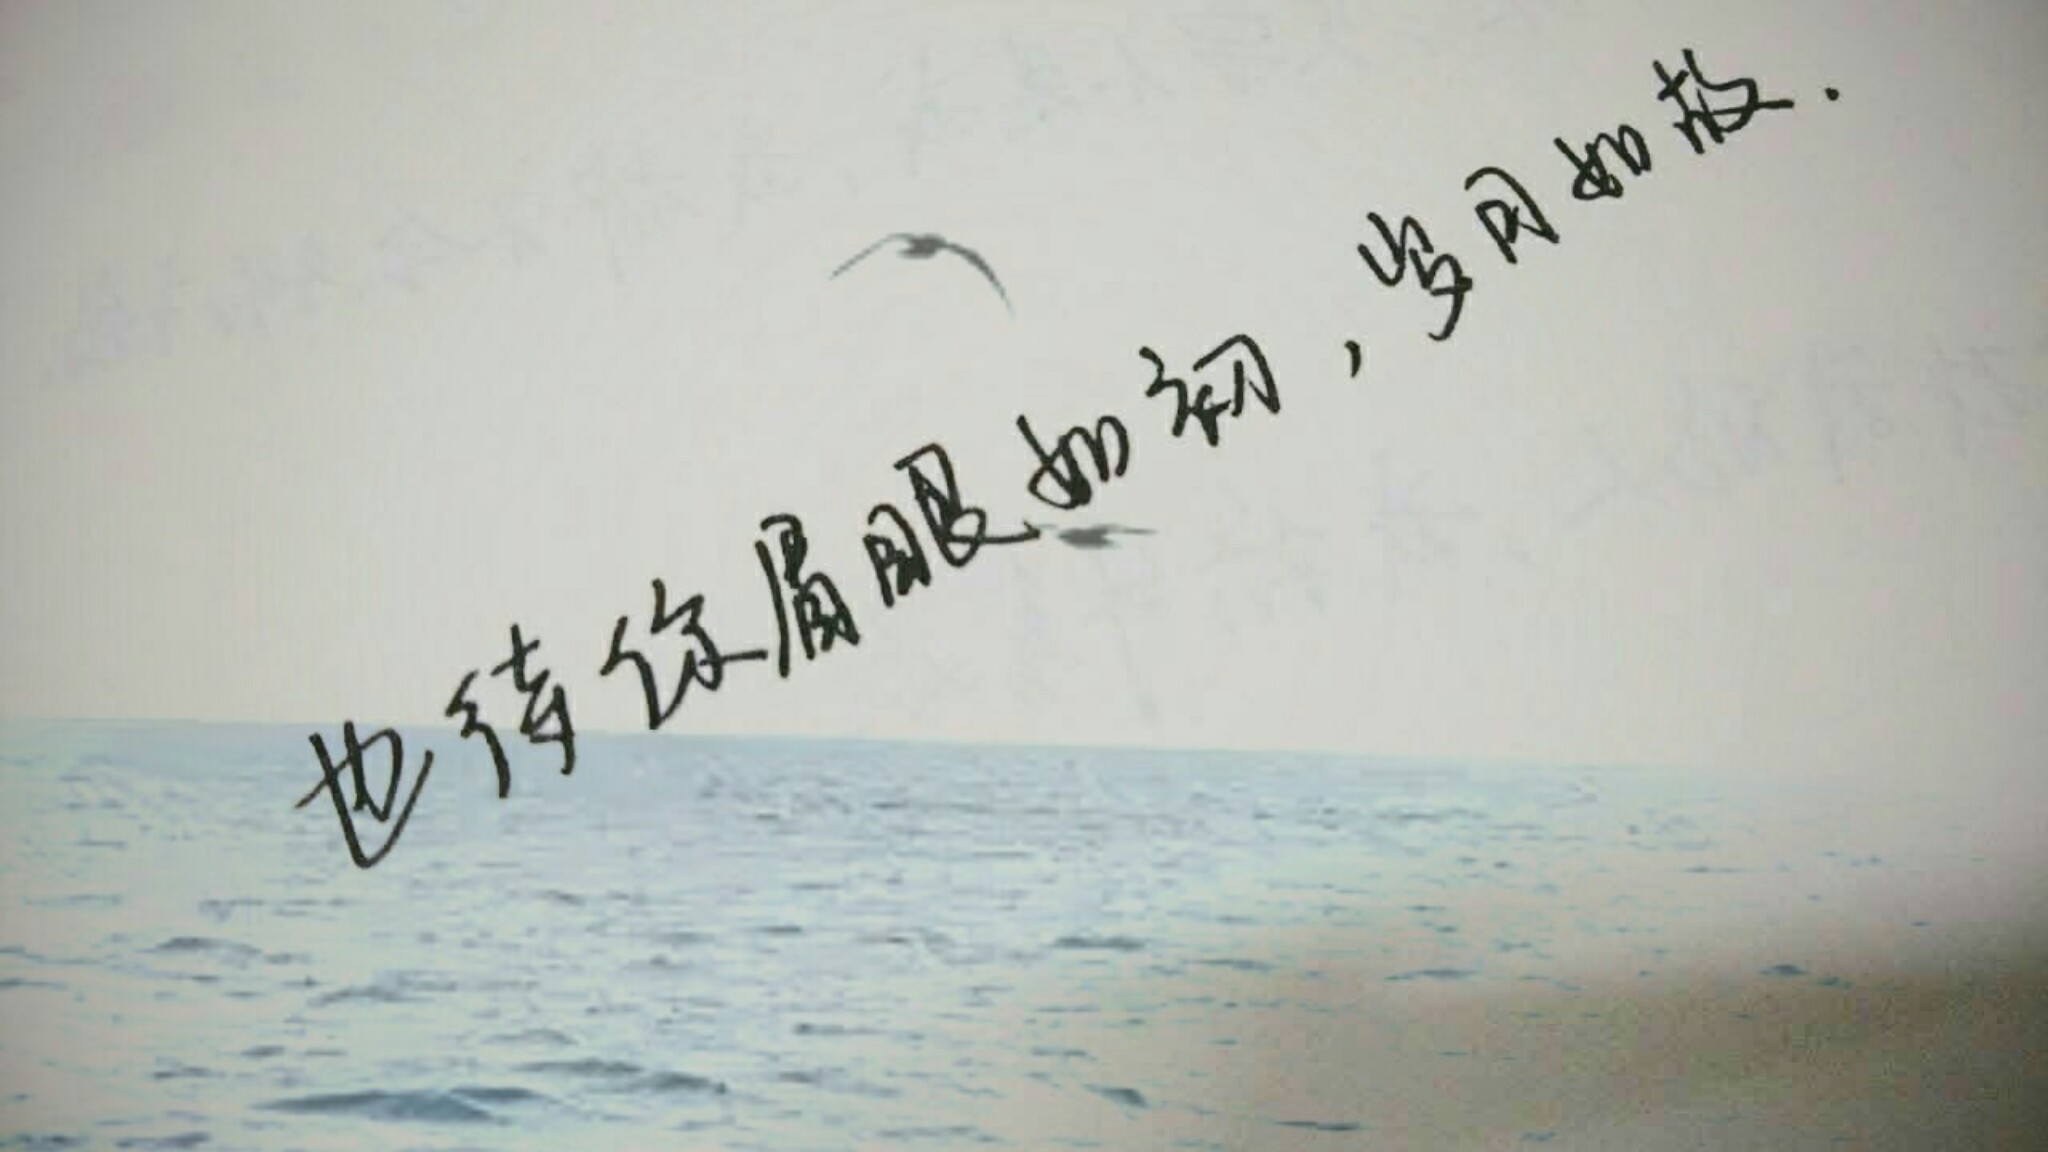 也待你眉眼如初，岁月如故.